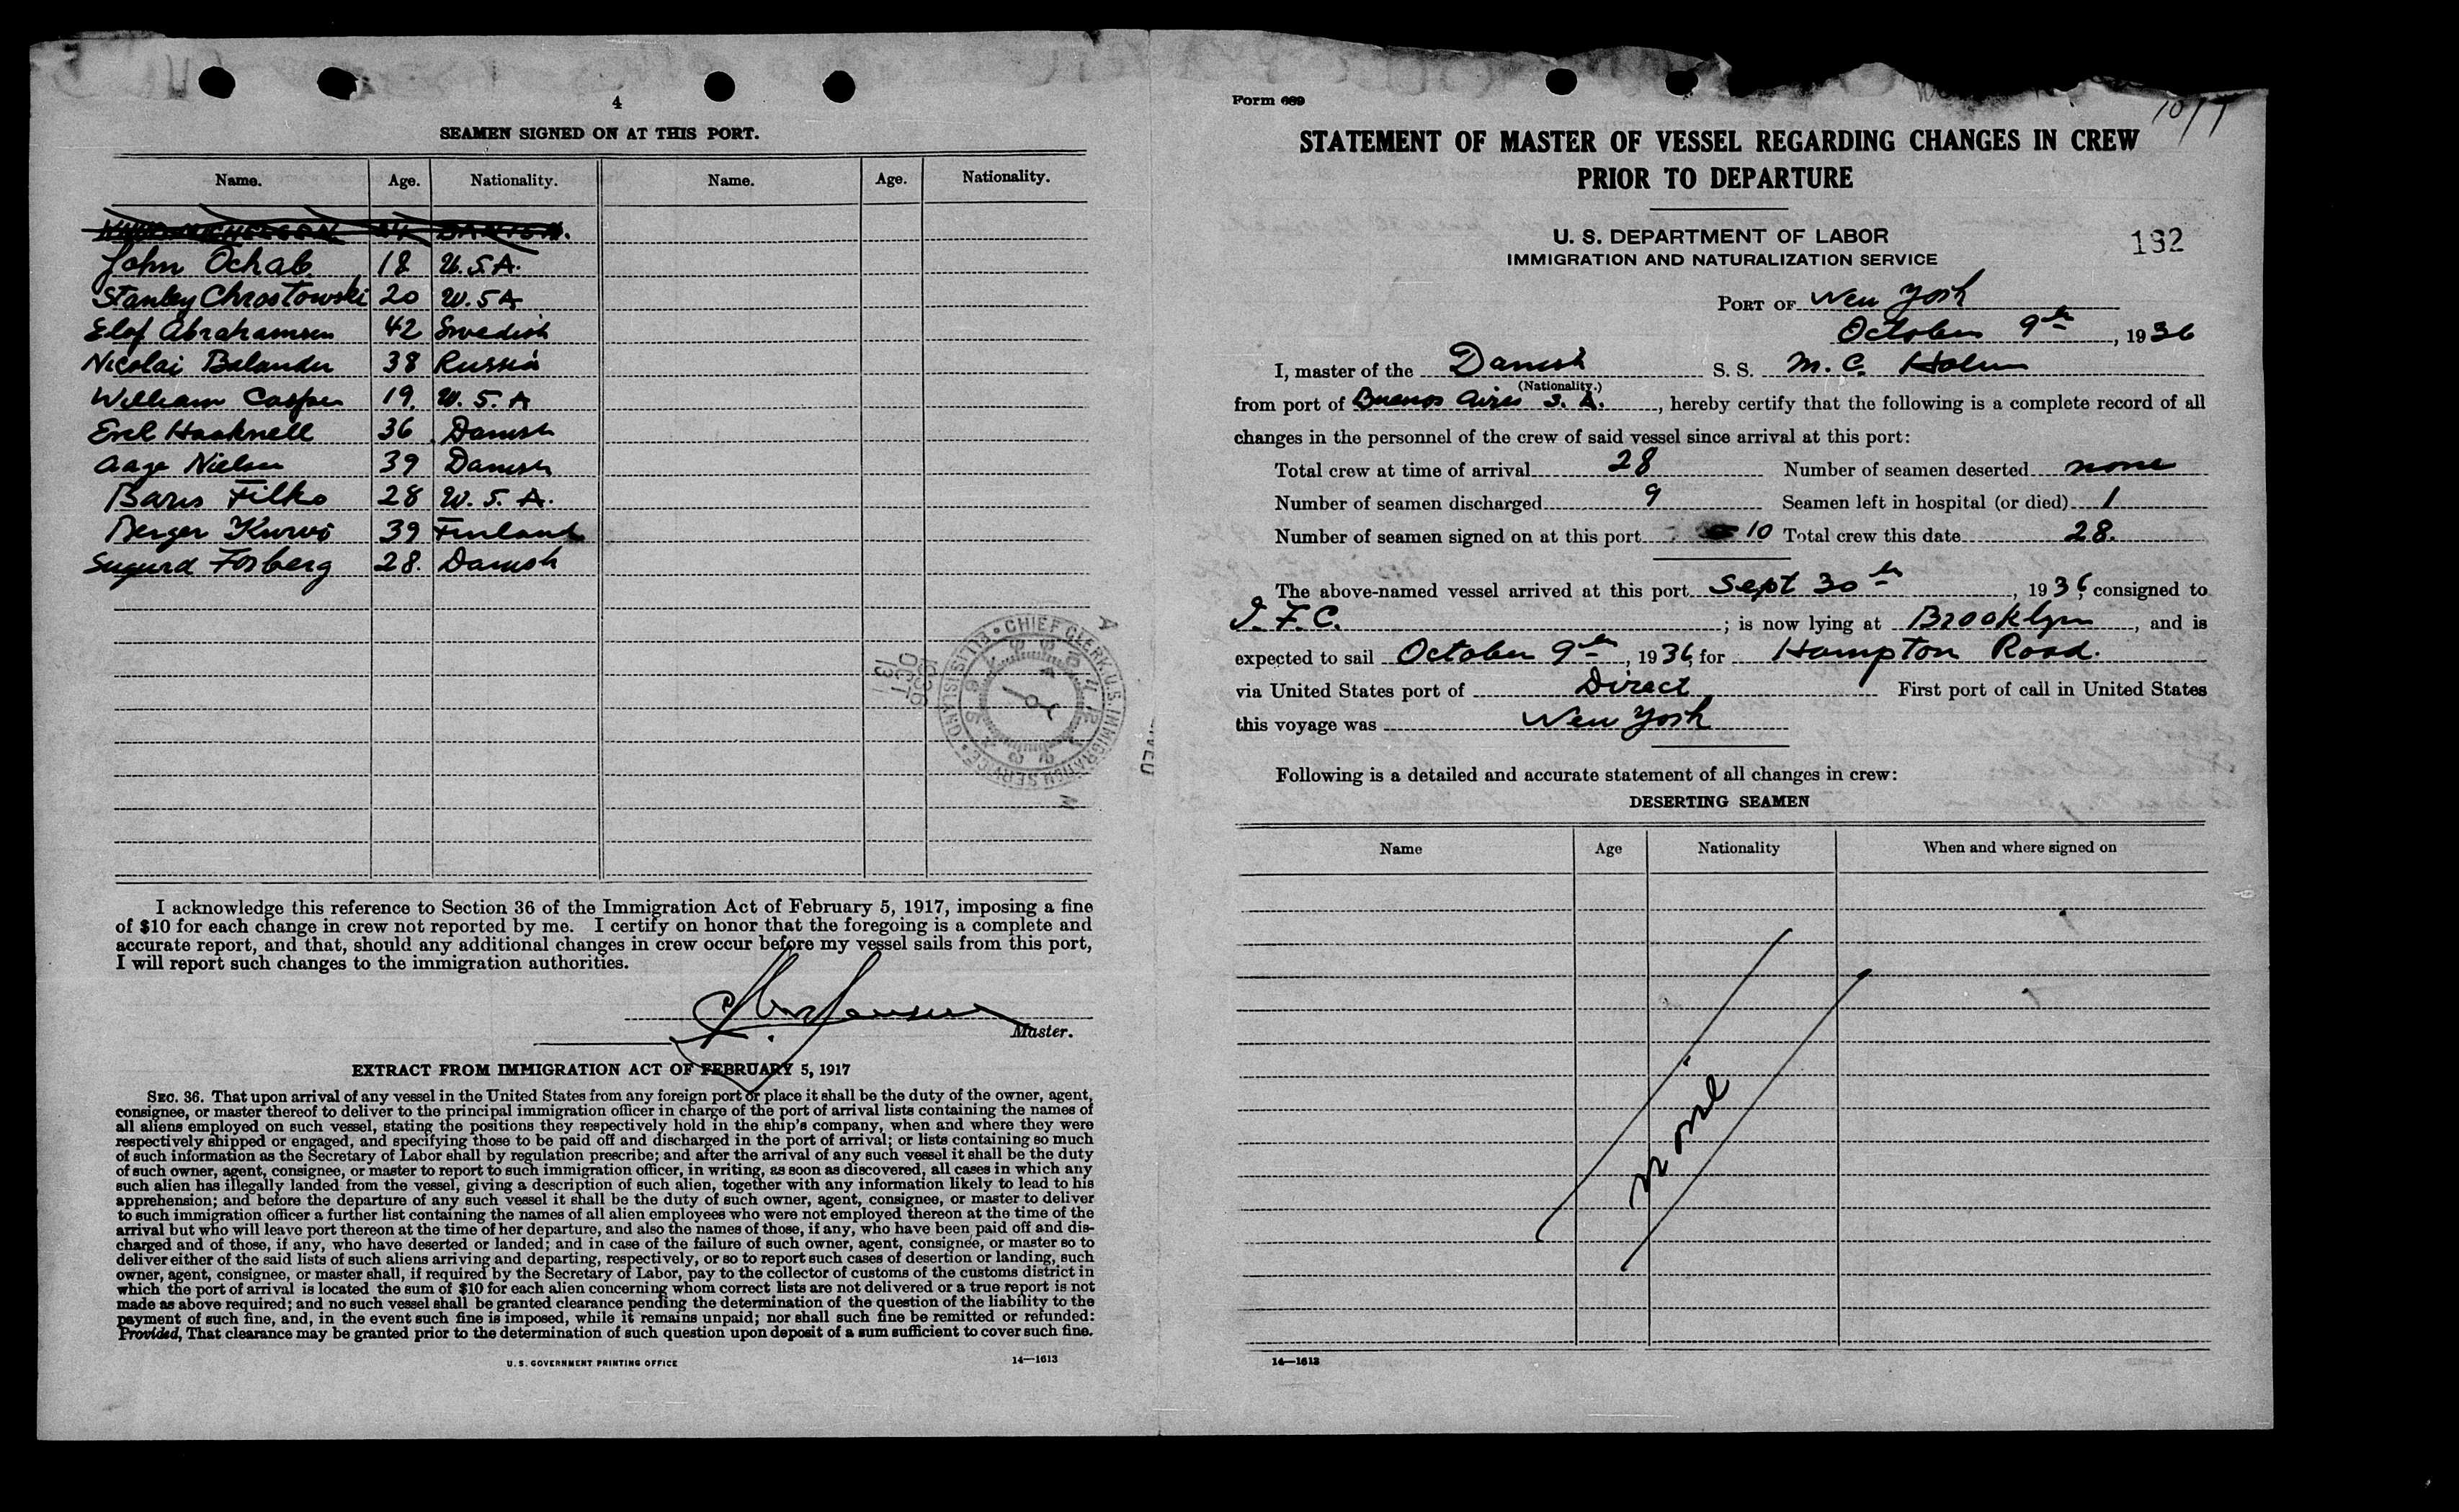 4
SEAMEN SIGNED ON AT THIS PORT.
Name. Age. Nationality. Name. Age. Nationality.
John Ochab 18 U.S.A.
Stanley Chrostowski 20 U.S.A
Elof Abrahamsen 42 Swedish
Nicolai Belander 38 Russia
William Casper 19. U.S.A
36 Danish
Aage Nielsen 39 Danish
Baris Filko 28 U.S.A.
Berger Kurvi 39 Finland
Sugurd Forberg 28. Danish
CHIEF CLERK, U.S. IMMIGRATION SERVICE ELLIS ISLAND
I acknowledge this reference to Section 36 of the Immigration Act of February 5, 1917, imposing a fine
of $10 for each change in crew not reported by me. I certify on honor that the foregoing is a complete and
accurate report, and that, should any additional changes in crew occur before my vessel sails from this port,
I will report such changes to the immigration authorities.
Master.
EXTRACT FROM IMMIGRATION ACT OF FEBRUARY 5, 1917
SEC. 36. That upon arrival of any vessel in the United States from any foreign port or place it shall be the duty of the owner, agent,
consignee, or master thereof to deliver to the principal immigration officer in charge of the port of arrival lists containing the names of
all aliens employed on such vessel, stating the positions they respectively hold in the ship's company, when and where they were
respectively shipped or engaged, and specifying those to be paid off and discharged in the port of arrival; or lists containing so much
of such information as the Secretary of Labor shall by regulation prescribe; and after the arrival of any such vessel it shall be the duty
of such owner, agent, consignee, or master to report to such immigration officer, in writing, as soon as discovered, all cases in which any
such alien has illegally landed from the vessel, giving a description of such alien, together with any information likely to lead to his
apprehension; and before the departure of any such vessel it shall be the duty of such owner, agent, consignee, or master to deliver
to such immigration officer a further list containing the names of all alien employees who were not employed thereon at the time of the
arrival but who will leave port thereon at the time of her departure, and also the names of those, if any, who have been paid off and dis-
charged and of those, if any, who have deserted or landed; and in case of the failure of such owner, agent, consignee, or master so to
deliver either of the said lists of such aliens arriving and departing, respectively, or so to report such cases of desertion or landing, such
owner, agent, consignee, or master shall, if required by the Secretary of Labor, pay to the collector of customs of the customs district in
which the port of arrival is located the sum of $10 for each alien concerning whom correct lists are not delivered or a true report is not
made as above required; and no such vessel shall be granted clearance pending the determination of the question of the liability to the
payment of such fine, and, in the event such fine is imposed, while it remains unpaid; nor shall such fine be remitted or refunded:
Provided, That clearance may be granted prior to the determination of such question upon deposit of a sum sufficient to cover such fine.
U. S. GOVERNMENT PRINTING OFFICE 14—1613
Form 689
10/9
STATEMENT OF MASTER OF VESSEL REGARDING CHANGES IN CREW
PRIOR TO DEPARTURE
U. S. DEPARTMENT OF LABOR
IMMIGRATION AND NATURALIZATION SERVICE
192
PORT OF New York
October 9th, 1936
I, master of the Danish S. S. M. C. Holm
(Nationality.)
from port of Buenos Aires S. A., hereby certify that the following is a complete record of all
changes in the personnel of the crew of said vessel since arrival at this port:
Total crew at time of arrival 28 Number of seamen deserted none
Number of seamen discharged 9 Seamen left in hospital (or died) 1
Number of seamen signed on at this port 10 Total crew this date 28.
The above-named vessel arrived at this port Sept 30th, 1936, consigned to
I. F. C.; is now lying at Brooklyn, and is
expected to sail October 9th, 1936, for Hampton Road.
via United States port of Direct First port of call in United States
this voyage was New York
Following is a detailed and accurate statement of all changes in crew:
DESERTING SEAMEN
Name Age Nationality When and where signed on
none
14—1613